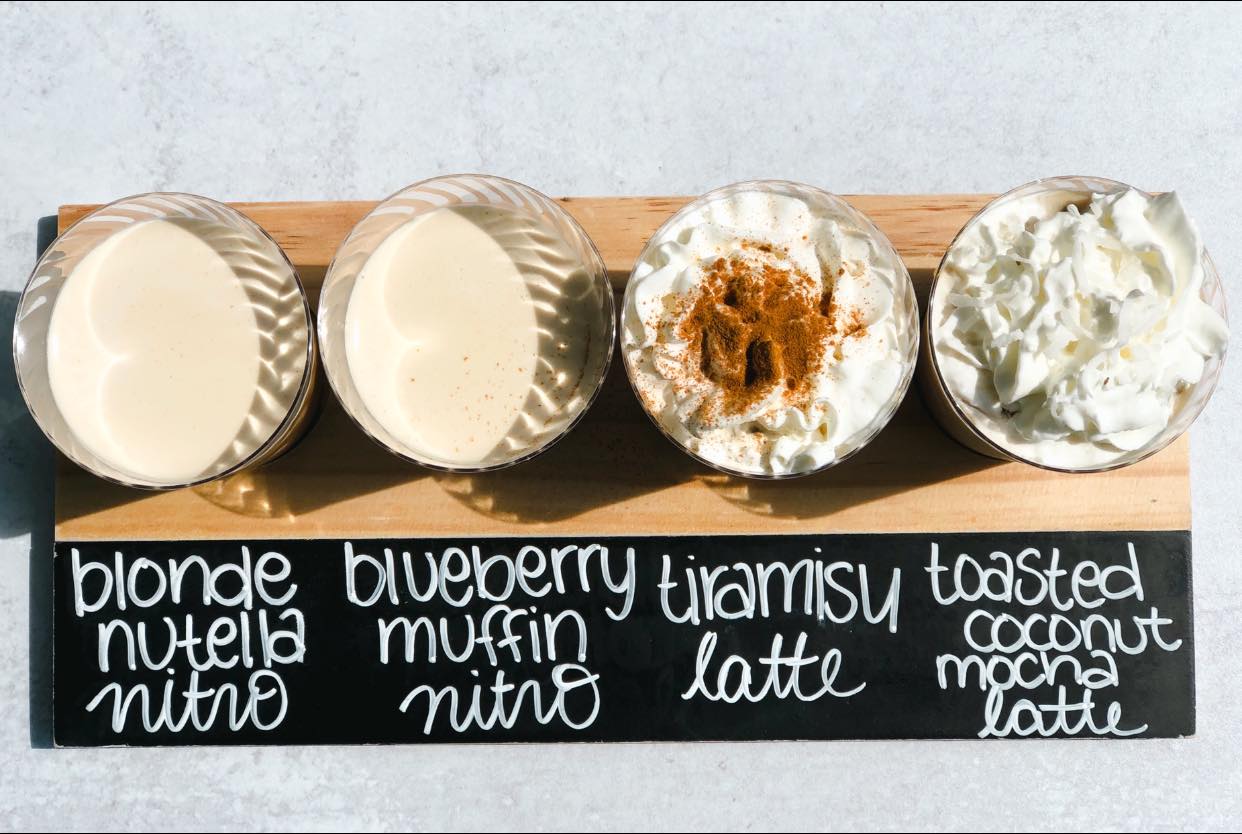 blonde
nutella
nitro
blueberry
muffin
nitro
tiramisu
latte
toasted
coconut
mocha
latte